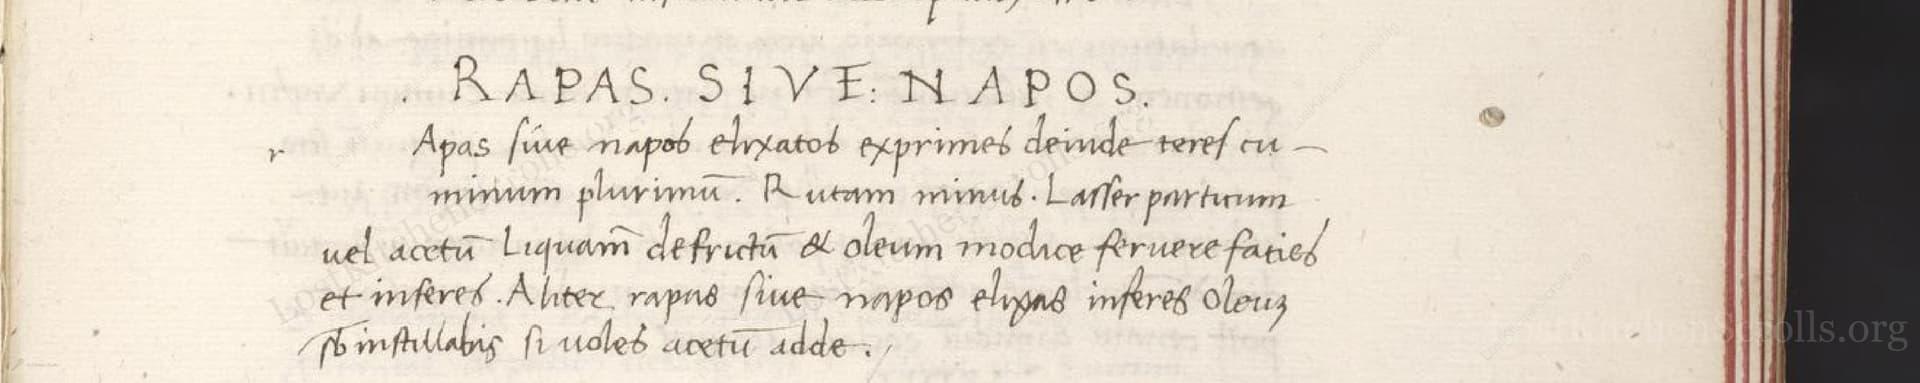 . RAPAS. SIVE: NAPOS.
r Apas siue napos elixatos exprimes deinde teres cu-
minum plurimū. Rutam minus. Lasser particum
uel acetū Liquam̄ defrictū & oleum modice feruere facies
et inferes. Aliter rapas siue napos elixas inferes Oleuʒ
instillabis si uoles acetū adde.